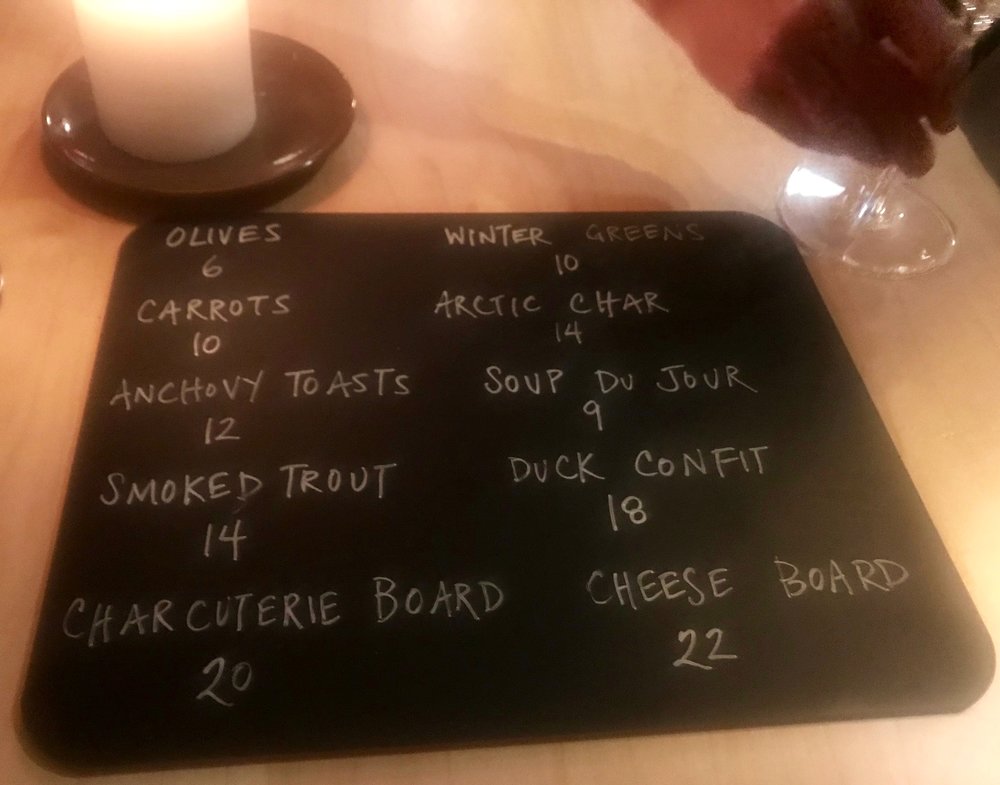 OLIVES
6
CARROTS
10
ANCHOVY TOASTS
12
SMOKED TROUT
14
CHARCUTERIE BOARD
20
WINTER GREENS
10
ARCTIC CHAR
14
SOUP DU JOUR
9
DUCK CONFIT
18
CHEESE BOARD
22